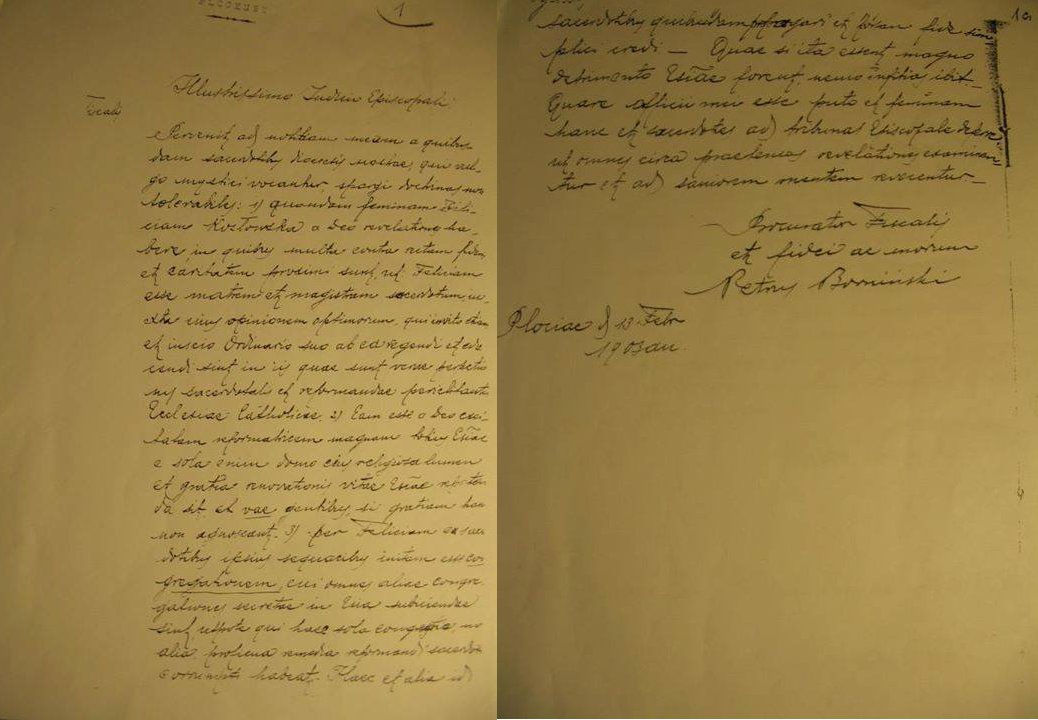 1
Illustrissimo Iudicio Episcopali
Pervenit ad notitiam meam a quibus
dam sacerdotibus diocesis nostrae, qui vul-
go mystici vocantur, spargi doctrinas non
tolerabiles: 1) quandam feminam Feli-
ciam Kozłowska a Deo revelationes ha-
bere, in quibus multa contra rectam fidem
et caritatem proximi sunt, ut Feliciam
esse matrem et magistram sacerdotum, iu-
xta eius opinionem optimorum, qui invito etiam
et inscio Ordinario suo ab ea regendi et
cendi sint in iis quae sunt verae perfectio
nis sacerdotalis et reformandae periclitantis
Ecclesiae Catholicae. 2) Eam esse a Deo exci-
tatam reformatricem magnam totius Eccliae
e sola enim domo eius religiosa lumen
et gratia renovationis vitae Eccliae
da sit, et vae gentibus, si gratiam hanc
non agnoscant. 3) per Feliciam ex sacer
dotibus ipsius sequacibus initam esse con
gregationem, cui omnes aliae congre
gationes secretae in Ecclia subiiciendae
sint, utpote qui haec sola no
alia, proficua remedia reformandi
habeat. Haec et alia
1a
sacerdotibus quibusdam et fide sim
plici credi — Quae si ita essent, magno
detrimento Eccliae forent, nemo inficias ibit.
Quare officii mei esse puto et feminam
hanc et sacerdotes ad tribunal Episcopale
ut omnes circa praetensas revelationes examinen
tur et ad saniorem mentem
Procurator Fiscalis
et fidei ac morum
Petrus
Plociae d 13 Febr
1903 an.